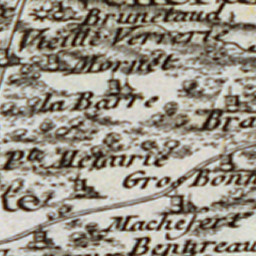 Brunetaud
Vieille Verrerie
Mornet
la Barre
Bra
Pte. Metairie
Gros Bonn
Machefert